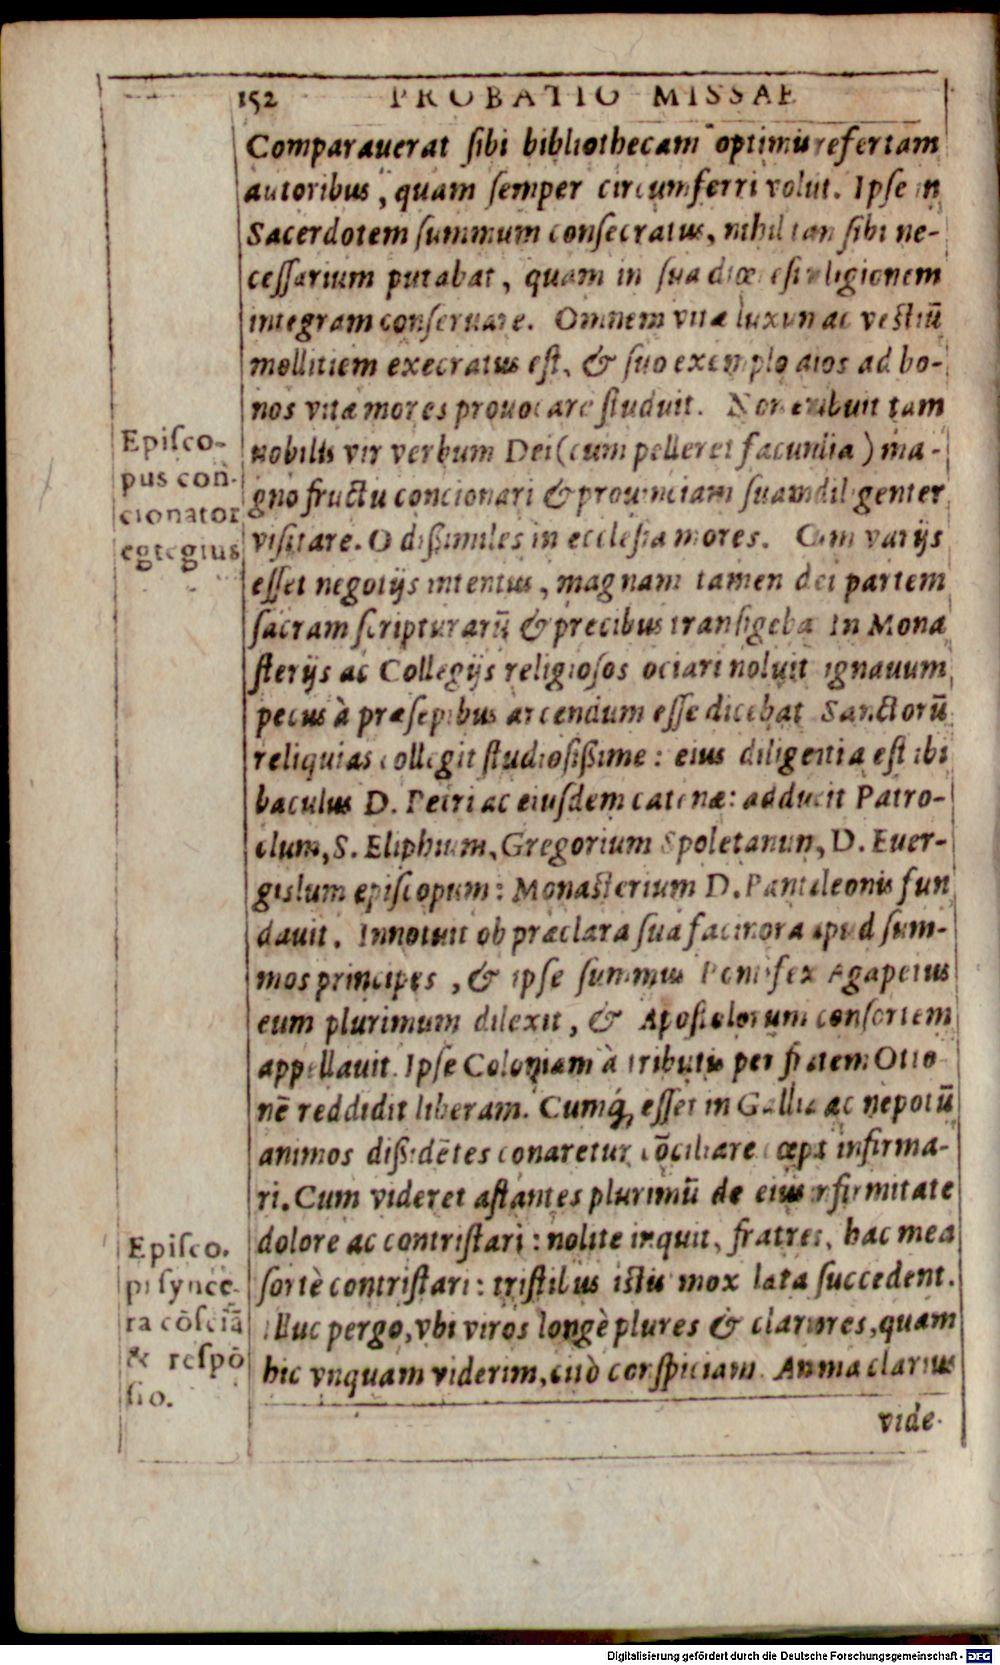 152 PROBATIO MISSAE
Comparauerat sibi bibliothecam optimũ refertam
autoribus, quam semper circumferri voluit. Ipse in
Sacerdotem summum consecratus, nihil tan sibi ne-
cessarium putabat, quam in sua diœcesi religionem
integram conseruare. Omnem vitæ luxun ac vestiũ
mollitiem execratus est, & suo exemplo alios ad bo-
nos vitæ mores prouocare studuit. Non erubuit tam
nobilis vir verbum Dei (cum pelleret facundia) ma-
gno fructu concionari & prouinciam suam diligenter
visitare. O dißimiles in ecclesia mores. Cum varijs
esset negotijs intentus, magnam tamen dei partem
sacram scripturarũ & precibus transigeba In Mona
sterijs ac Collegijs religiosos ociari noluit ignauum
pecus à præsepibus arcendum esse dicebat Sanctorũ
reliquias collegit studiosißime: eius diligentia est ibi
baculus D. Petri ac eiusdem catenæ: adduxit Patro-
clum, S. Eliphium, Gregorium Spoletanun, D. Euer-
gislum episcopum: Monasterium D. Pantaleonis fun
dauit. Innotuit ob præclara sua facinora apud sum-
mos principes, & ipse summus Pontifex Agapetus
eum plurimum dilexit, & Apostolorum consortem
appellauit. Ipse Coloniam à tributis per fratem Otto
nẽ reddidit liberam. Cumq́; esset in Gallia ac nepotũ
animos dißidẽtes conaretur cõciliare cœpit infirma-
ri. Cum videret astantes plurimũ de eius infirmitate
dolore ac contristari: nolite inquit, fratres, hac mea
sortè contristari: tristibus istis mox læta succedent.
Illuc pergo, vbi viros longè plures & clariores, quam
hic vnquam viderim, citò conspiciam. Anima clarius
vide-
Episco-
pus con-
cionator
egregius
Episco.
pi synce-
ra cõsciã
& respõ
sio.
Digitalisierung gefördert durch die Deutsche Forschungsgemeinschaft - DFG